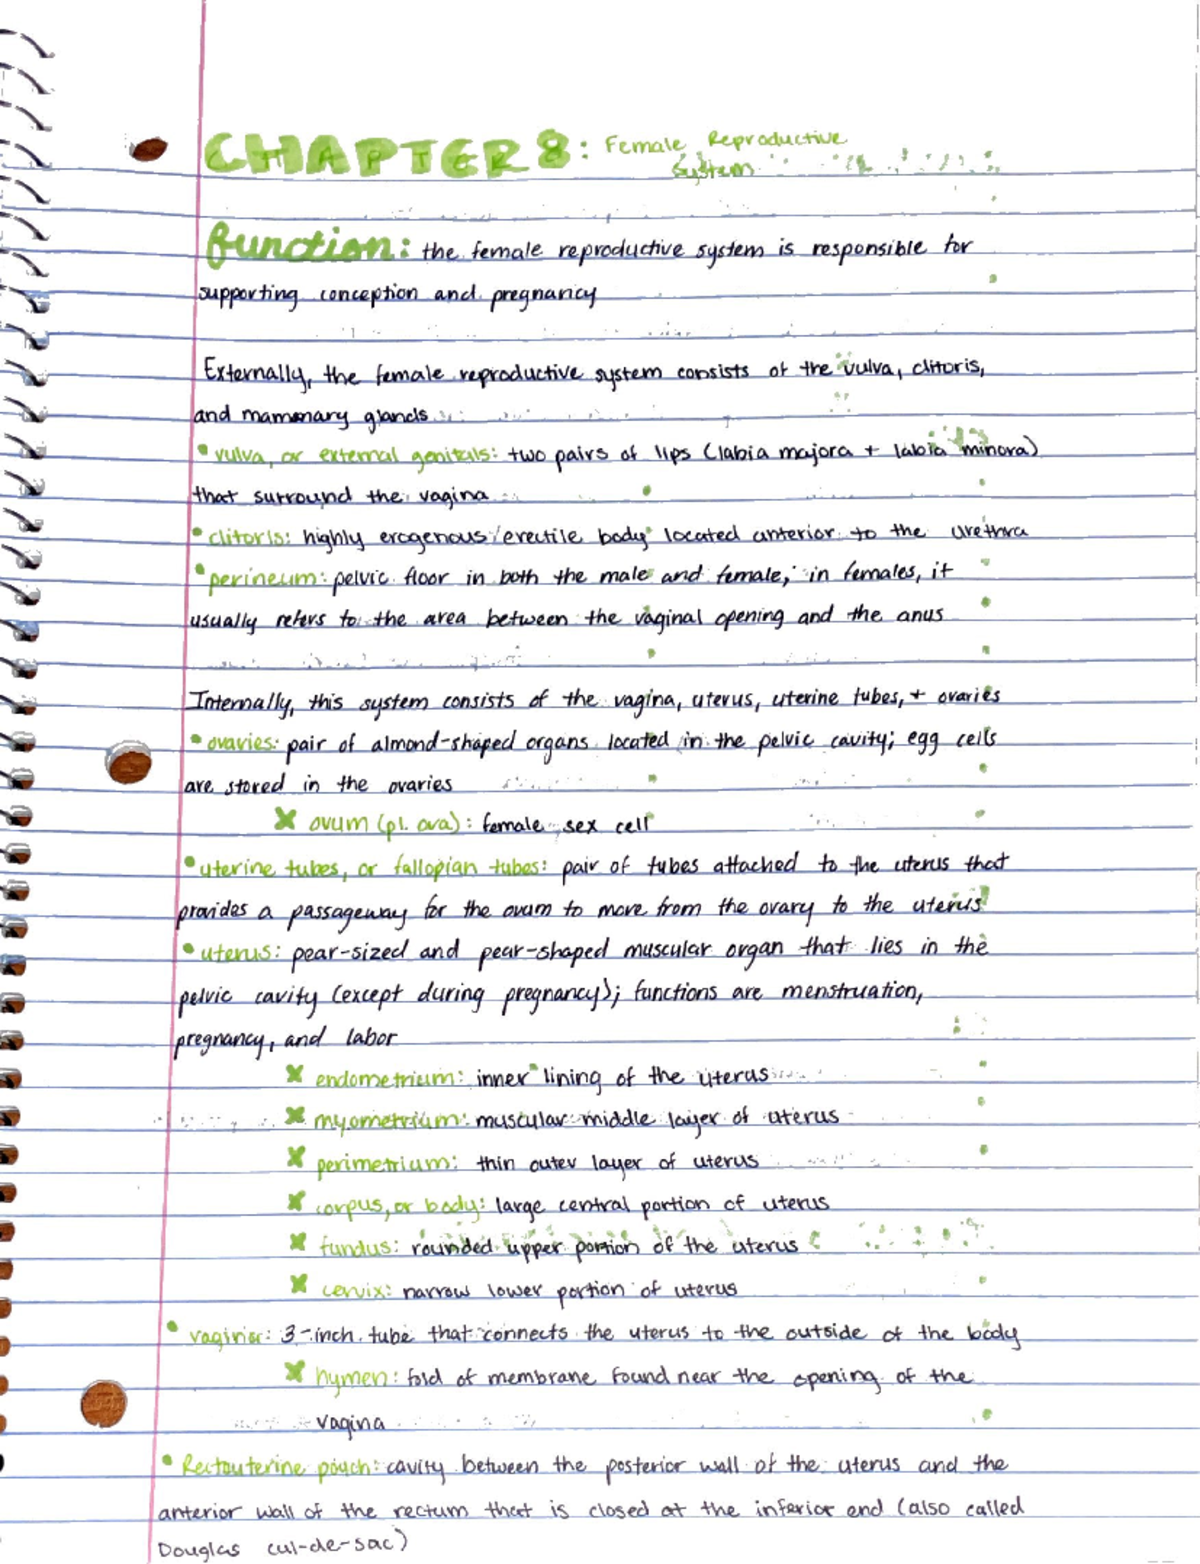 CHAPTER 8: Female Reproductive
System
function: the female reproductive system is responsible for
supporting conception and pregnancy
Externally, the female reproductive system consists of the vulva, clitoris,
and mammary glands
• vulva, or external genitals: two pairs of lips (labia majora + labia minora)
that surround the vagina
• clitoris: highly erogenous/erectile body located anterior to the urethra
• perineum: pelvic floor in both the male and female; in females, it
usually refers to the area between the vaginal opening and the anus
Internally, this system consists of the vagina, uterus, uterine tubes, + ovaries
• ovaries: pair of almond-shaped organs located in the pelvic cavity; egg cells
are stored in the ovaries
x ovum (pl. ova): female sex cell
• uterine tubes, or fallopian tubes: pair of tubes attached to the uterus that
provides a passageway for the ovum to move from the ovary to the uterus
• uterus: pear-sized and pear-shaped muscular organ that lies in the
pelvic cavity (except during pregnancy); functions are menstruation,
pregnancy, and labor
x endometrium: inner lining of the uterus
x myometrium: muscular middle layer of uterus
x perimetrium: thin outer layer of uterus
x corpus, or body: large central portion of uterus
x fundus: rounded upper portion of the uterus
x cervix: narrow lower portion of uterus
• vagina: 3-inch tube that connects the uterus to the outside of the body
x hymen: fold of membrane found near the opening of the
vagina
• Rectouterine pouch: cavity between the posterior wall of the uterus and the
anterior wall of the rectum that is closed at the inferior end (also called
Douglas cul-de-sac)